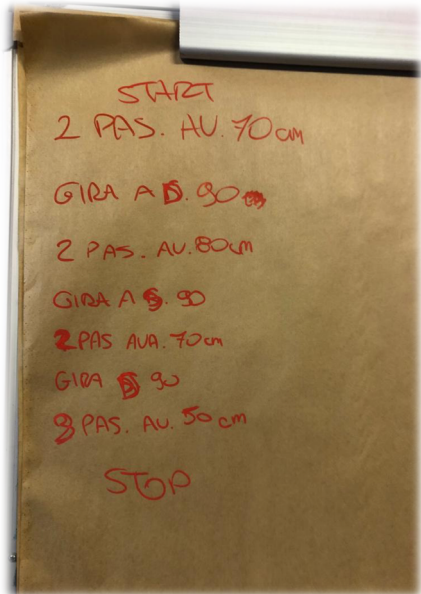 START
2 PAS. AV. 70 cm
GIRA A D. 90
2 PAS. AV. 80 cm
GIRA A S. 90
2 PAS AVA. 70 cm
GIRA D 90
3 PAS. AV. 50 cm
STOP